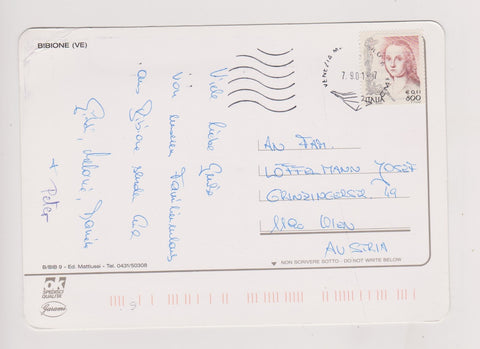 BIBIONE (VE)
Viele liebe Grüße
von unserem Familienurlaub
aus Bibione senden Euch
+ Peter
VENEZIA
7.9.01
ITALIA
800
AN FAM.
LOTTELMANN JOSEF
GRINZINGERSTR. 49
1190 WIEN
AUSTRIA
B/BIB 9 - Ed. Mattiussi - Tel. 0431/50308
NON SCRIVERE SOTTO - DO NOT WRITE BELOW
SPECIFICI
QUALITÀ
Garami